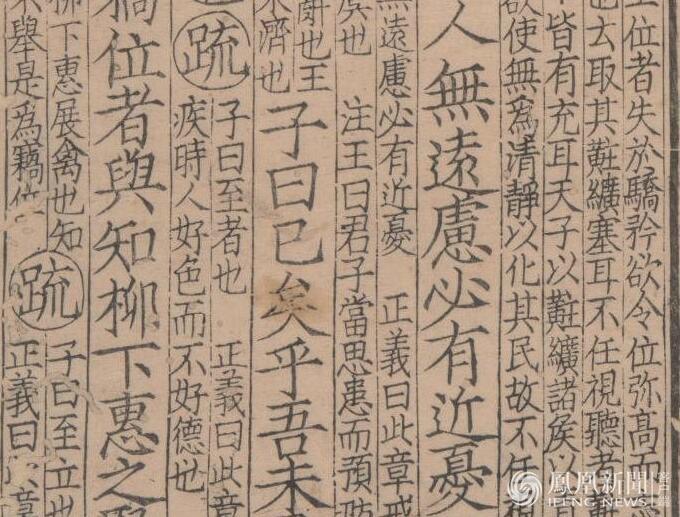 位者失於驕矜欲令位弥高
也去取其黈纊塞耳不任視聽
皆有充耳天子以黈纊諸矦以
欲使無爲清靜以化其民故不任
人無遠慮必有近憂
無遠慮必有近憂 正義曰此章戒
矣也 注王曰君子當思患而預防
也王
濟也
子曰已矣乎吾未
疏
子曰至者也 正義曰此章
疾時人好色而不好德也
位者與知柳下惠之
柳下惠展禽也知
不舉是爲竊位
疏
子曰至立也
正義曰此章
鳳凰新聞客戶端
IFENG NEWS